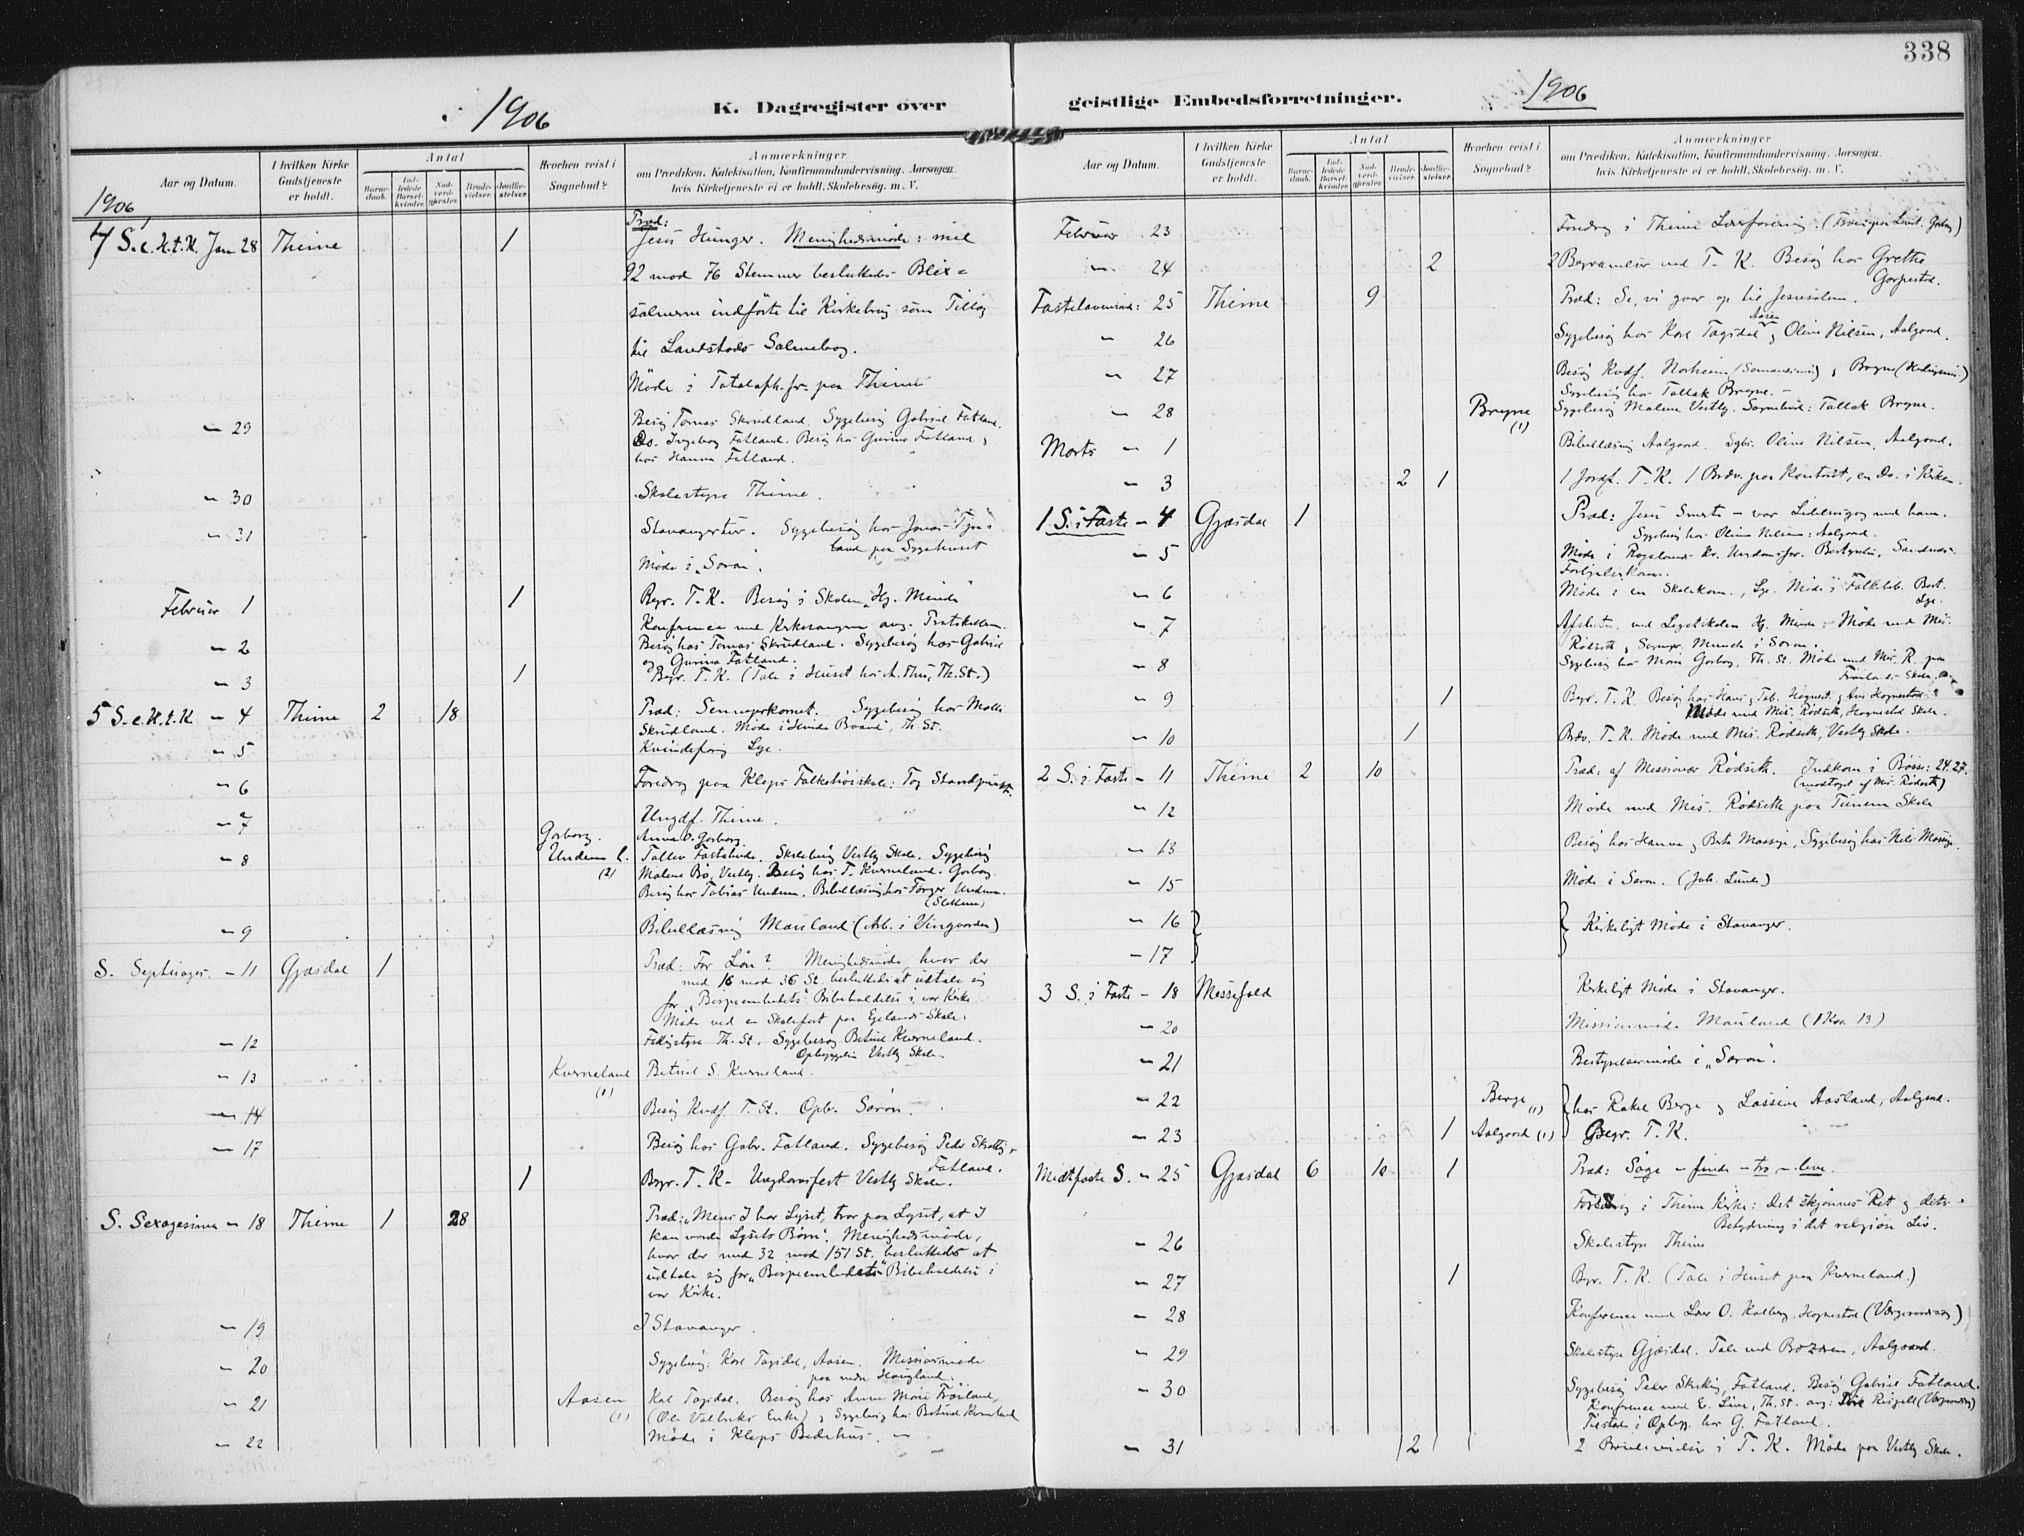 338
1906
K. Dagregister over
geistlige Embedsforretninger.
1906
Aar og Datum.
I hvilken Kirke Gudstjeneste er holdt.
Antal
Barnedaab.
Indledede Barselkvinder.
Nadverdgjester.
Brudevielser.
Jordfæstelser.
Hvorhen reist i Sognebud?
Anmærkninger
om Prædiken, Katekisation, Konfirmandundervisning, Aarsagen,
hvis Kirketjeneste ei er holdt, Skolebesøg. m. V.
1906
S. e. H. t. K. Jan 28 Thime 1 Præd:
Jesu Hunger. Menighedsmøde: med
92 mod 76 Stemmer besluttedes Blix=
salmerne indførte til Kirkebrug som Tillæg
til Landstads Salmebog.
Møde i Totalafh.fr. paa Thime
- 29 Besøg Tomas Skrudland. Sygebesøg Gabriel Fatland.
Do. Ingeborg Fatland. Besøg hos Gurina Fatland,
hos Hanna Fatland.
- 30 Skolestyre Thime.
- 31 Stavangertur. Sygebesøg hos Jonas Tjus=
land paa Sygehuset
Møde i "Saron".
Februar 1 1 Begr. T. K. Besøg i Skolen "Hg. Minde"
Konference med Kirkesangeren ang.
- 2 Besøg hos Tomas Skrudland. Sygebesøg hos Gabriel
og Gurina Fatland.
- 3 1 Begr. T. K. (Tale i Huset hos A. Thu, Th. St.)
5 S. e. H. t. K. - 4 Thime 2 18 Præd: Sennepskornet. Sygebesøg hos
Skrudland. Møde i Th. St.
- 5 Kvindeforg Lye.
- 6 Foredrag paa Kleps Folkehøiskole: To Standpunkt.
- 7 Ungdf. Thime.
- 8 Gorborg. Undem (2) Anna O. Gorborg.
Tollev Skolebesøg Vestly Skole. Sygebesøg
Malene Bø, Vestly. Besøg hos T. Kverneland. Gorborg.
Besøg hos Tobias Undem. Bibellæsning hos Torger Undem.
- 9 Bibellæsning Mauland (Arb. i Vingaarden)
S. Septuages. - 11 Gjæsdal 1 Præd: For Løn? Menighedsmøde, hvor der
med 16 mod 36 St. besluttedes at udtale sig
for "Bispeembedets" Bibeholdelse i vor Kirke.
Møde ved en Skolefest paa Egelands Skole.
- 12 Fattigstyre Th. St. Sygebesøg Betuel Kverneland.
Opbyggelse Vestly Skole.
- 13 Kverneland (1) Betuel S. Kverneland.
- 14 Besøg Kvdf. T. St. Opb. Saron.
- 17 Besøg hos Gabr. Fatland. Sygebesøg Peder
Fatland.
1 Begr. T. K. - Ungdomsfest Vestly Skole.
S. Sexagesima - 18 Thime 1 28 Præd: "Mens I har Lyset, tror paa Lyset, at I
kan vorde Lysets Børn". Menighedsmøde,
hvor der med 32 mod 151 St. besluttedes at
udtale sig for "Bispeembedets" Bibeholdelse i
vor Kirke.
- 19 I Stavanger.
- 20 Sygebesøg: Kore Tagidal, Aasen. Missionsmøde
paa nedre Haugland.
- 21 Aasen (1) Kal Tagidal. Besøg hos Anne Marie Frøsland,
(Ole Enke) & Sygebesøg hos Betuel Kverneland
- 22 Møde i Kleps Bedehus.
Aar og Datum.
I hvilken Kirke Gudstjeneste er holdt.
Antal
Barnedaab.
Indledede Barselkvinder.
Nadverdgjester.
Brudevielser.
Jordfæstelser.
Hvorhen reist i Sognebud?
Anmærkninger
om Prædiken, Katekisation, Konfirmandundervisning, Aarsagen,
hvis Kirketjeneste ei er holdt, Skolebesøg. m. V.
Februar 23 Foredrag i Thime Lærerforening.
- 24 2 2 Begravelser ved T. K. Besøg hos Grethe
Fastelavnssønd: 25 Thime 9 Præd: Se, vi gaar op til Jerusalem.
- 26 Sygebesøg hos Kore Tagidal Aasen & Oline Nilsen, Aalgaard.
- 27 Besøg Kvdf. Norheim & Bryne
Sygebesøg hos Tollak Bryne.
- 28 Bryne (1) Sygebesøg Malene Vestly. Sognebud: Tollak Bryne.
Marts - 1 Bibellæsning Aalgaard. Sgbs. Oline Nilsen, Aalgaard.
- 3 2 1 1 Jordf. T. K. 1 Brdv. paa Kontoret, en Do. i Kirken.
1 S. i Faste - 4 Gjæsdal 1 Præd: Jesu Smerte - vor Lidelse og med ham.
Sygebesøg hos Oline Nilsen: Aalgaard.
- 5 Møde i Rogalands Kr. Ungdomsfor. Bestyrelse, Sandnes.
Forligelseskom.
- 6 Møde i en Skolekom., Lye. Møde i Folkebib. Best.
Lye.
- 7 Afslutn. ved Legatskolen Hg. Minde: Møde med Mis.
Rødseth & Sognepr. Munch i Saron.
- 8 Sygebesøg hos Marie Gorborg, Th. St. Møde med Mis. R. paa
Skole.
- 9 1 Begr. T. K. Besøg hos Hans & Tab. Hognest. & Ane Hognestad.
Møde med Mis. Rødseth, Hognestad Skole.
- 10 1 Brdv. T. K. Møde med Mis. Rødseth, Vestly Skole.
2 S. i Faste - 11 Thime 2 10 Præd: af Missionær Rødseth. Indkom i Bøsse: 24.27.
(modtaget af Mis. Rødseth)
- 12 Møde med Mis. Rødseth paa Tunem Skole
- 13 Besøg hos Hanne & Berte Mossige, Sygebesøg hos Nils Mossige.
- 15 Møde i Saron. (Joh. Lunde)
- 16
- 17 Kirkeligt Møde i Stavanger.
3 S. i Faste - 18 Messefald Kirkeligt Møde i Stavanger.
- 20 Missionsmøde Mauland (1 Kor. 13)
- 21 Bestyrelsesmøde i "Saron".
- 22 Berge (1) hos Rakel Berge & Lassine Aasland, Aalgaard.
- 23 1 Aalgaard (1) Begr. T. K.
Midtfaste S. - 25 Gjæsdal 6 10 1 Præd: Søge - finde - tro - leve.
Foredrag i Thime Kirke: Det skjønnes Ret & dets
Betydning i det religiøse Liv.
- 26 Skolestyre Thime
- 27 1 Begr. T. K. (Tale i Huset paa Kverneland.)
- 28 Konference med Lær O. Kalberg, Hognestad (Værgeraadssag)
- 29 Skolestyre Gjæsdal. Tale ved Bazaren, Aalgaard.
- 30 Sygebesøg Peder Fatland. Besøg Gabriel Fatland.
Konference med E. Lima, Th. St. ang: (Værgeraadssag)
i Opbyg. hos G. Fatland.
- 31 2 2 Brudevielser i T. K. Møde paa Vestly Skole.